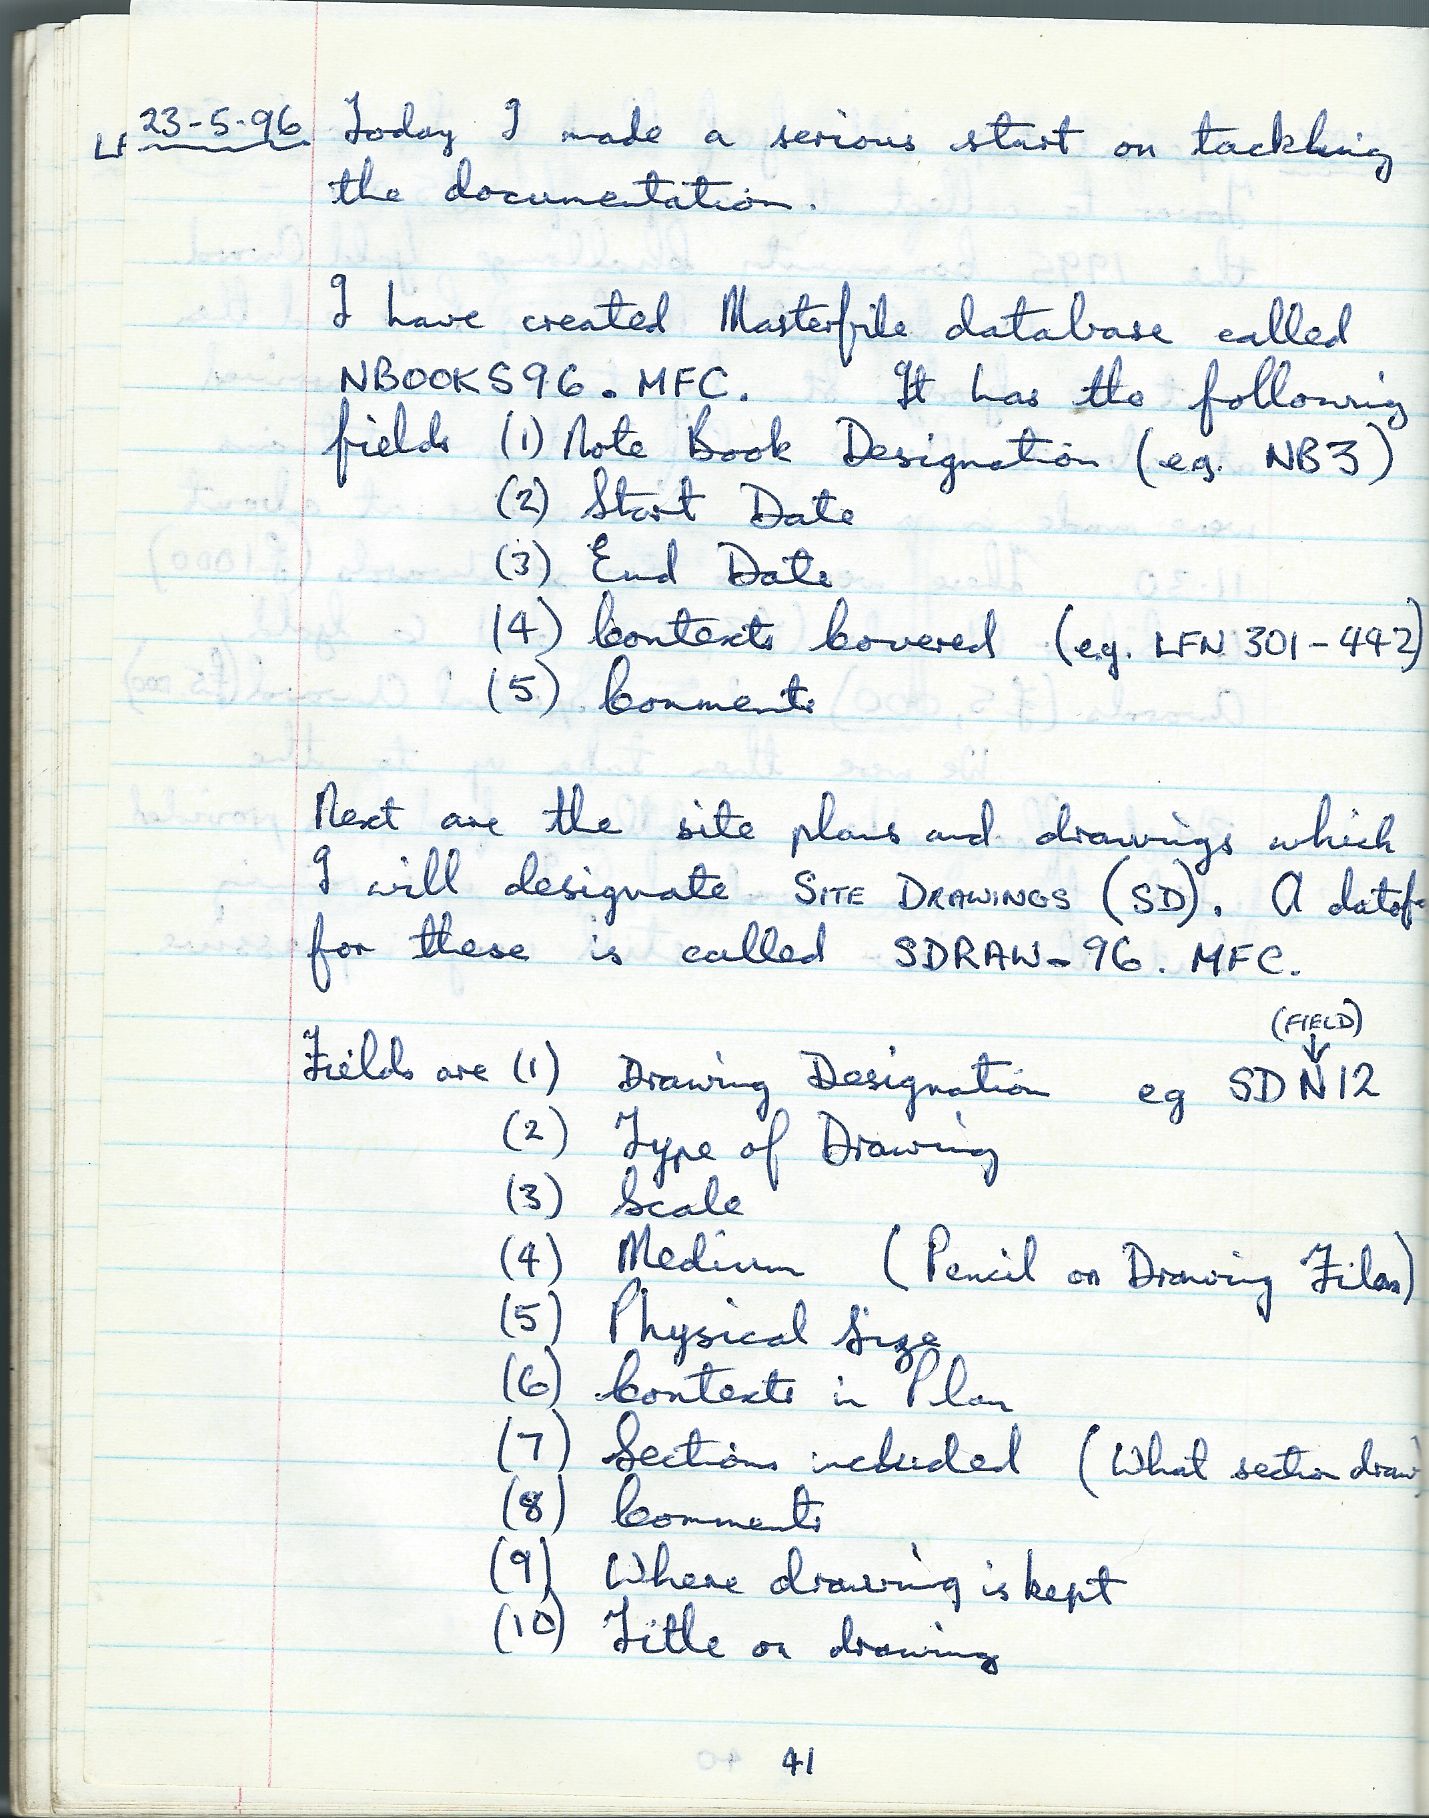 LF 23-5-96 Today I made a serious start on tackling
the documentation.
I have created Masterfile database called
NBOOKS96.MFC. It has the following
fields (1) Note Book Designation (eg. NB3)
(2) Start Date
(3) End Date
(4) Contexts Covered (eg. LFN 301-442)
(5) Comments
Next are the site plans and drawings which
I will designate SITE DRAWINGS (SD). A
for these is called SDRAW-96.MFC.
(FIELD)
Fields are (1) Drawing Designation eg SDN12
(2) Type of Drawing
(3) Scale
(4) Medium (Pencil on Drawing Film)
(5) Physical Size
(6) Contexts in Plan
(7) Sections included (What section draw
(8) Comments
(9) Where drawing is kept
(10) Title on drawing
41